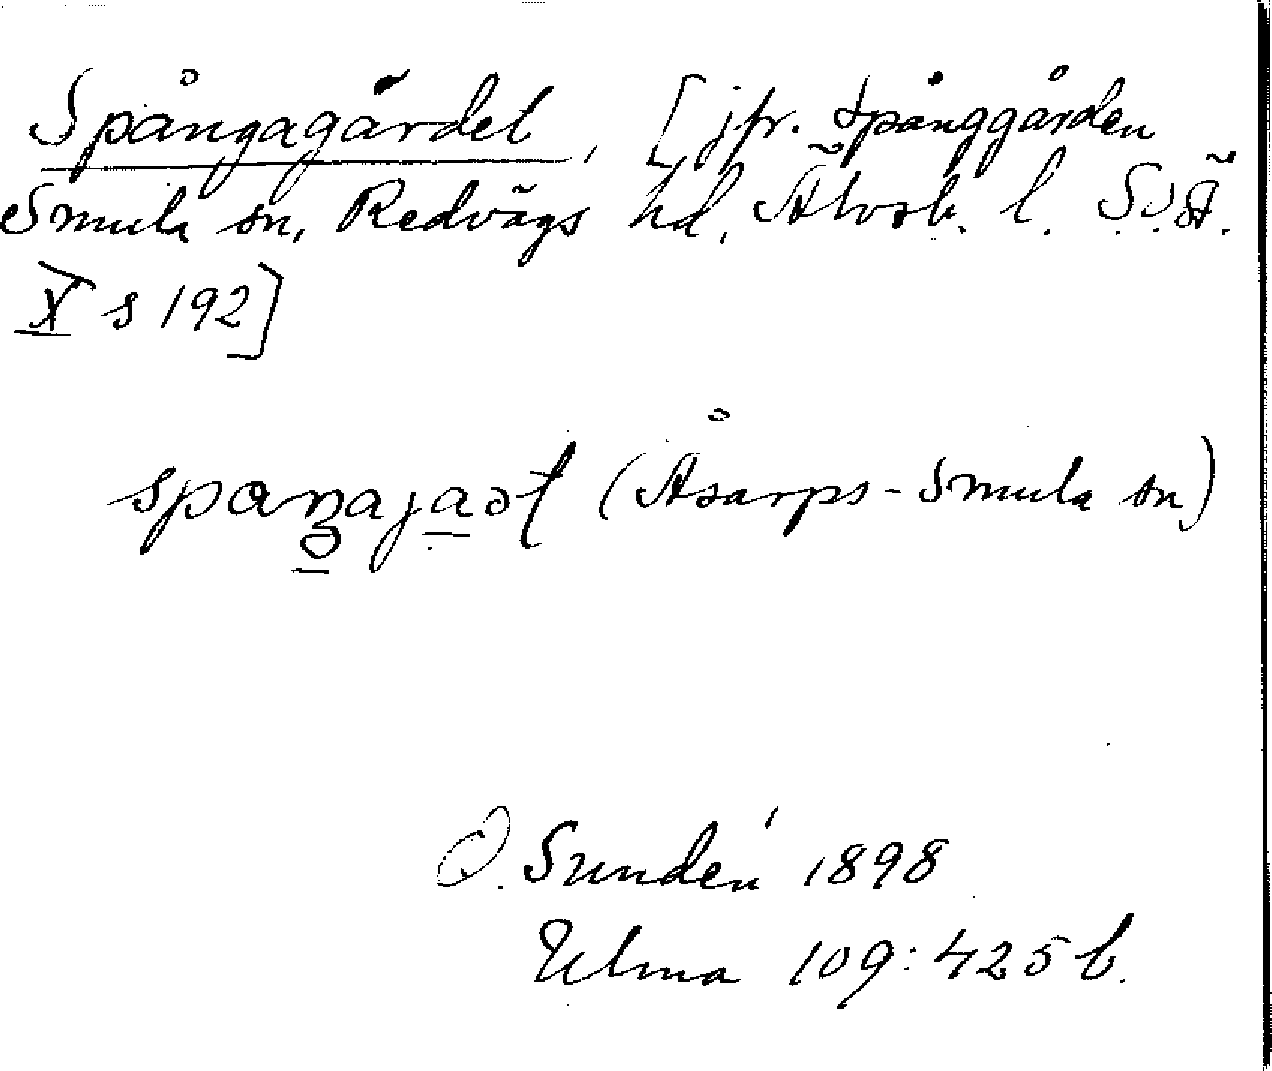 Spångagärdet, [jfr. Spånggården
Smula sn, Redvägs hd, Älvsb. l. S.O.Ä.
X s 192]
(Åsarps-Smula sn)
O. Sundén 1898
Ulma 109:425 b.